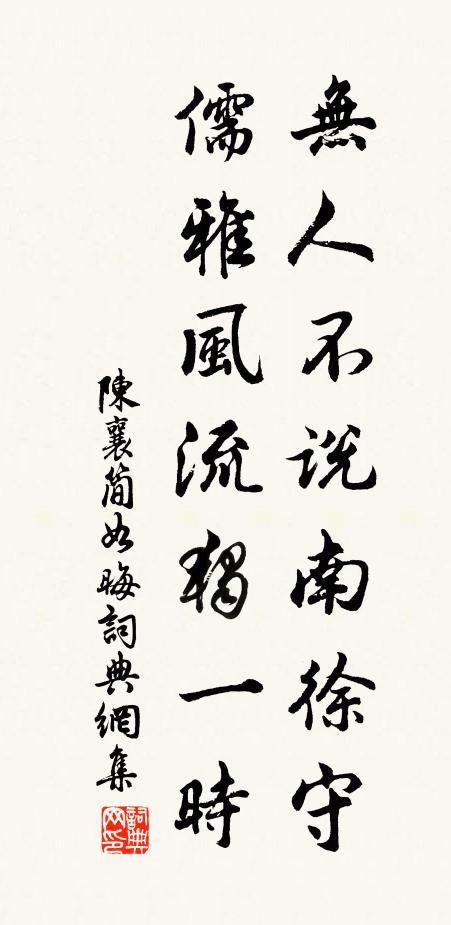 無人不説南徐守
儒雅風流獨一時
陳襄簡如晦詞典網集
詞典网印